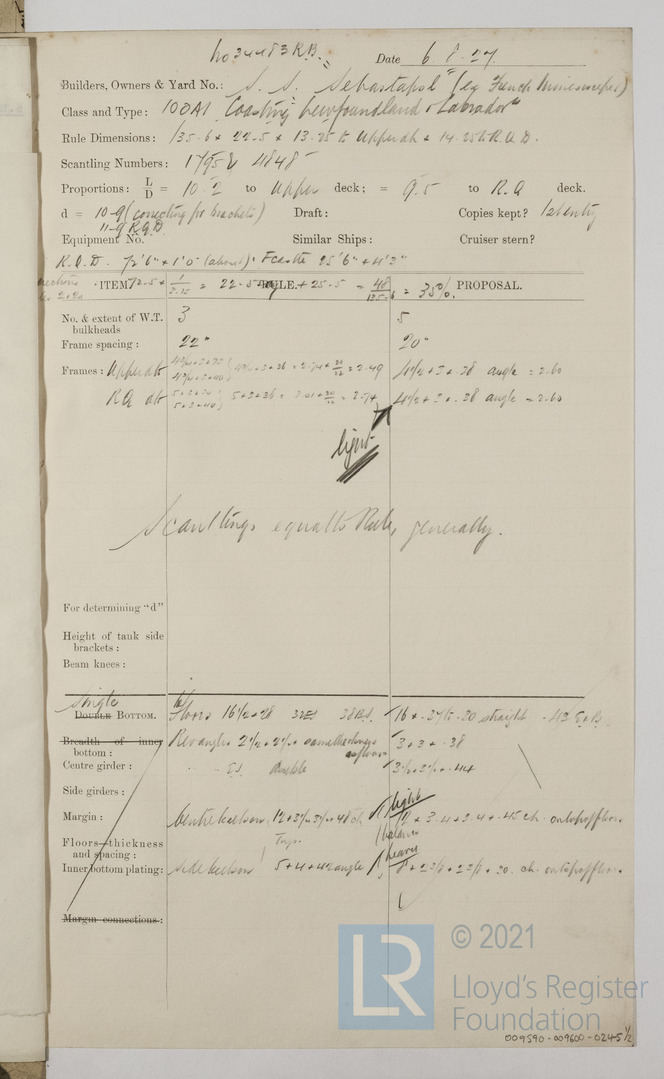 No 34483 R.B.
Date 6.8.27.
Builders, Owners & Yard No.: S.S. Sebastapol" (ex French Minesweeper)
Class and Type: 100A1 "Coasting Newfoundland & Labrador"
Rule Dimensions: 135.6 x 22.5 x 13.25 to Upper dk & 14.25 to R.Q.D.
Scantling Numbers: 1795 & 4848
Proportions: L/D = 10.2 to Upper deck; = 9.5 to R.Q deck.
d = 10.9 (correcting for brackets) Draft: Copies kept? Identity
11.9 R.Q.D.
Equipment No. Similar Ships: Cruiser stern?
R.Q.D. 72'6" x 1'0" (about). Fcastle 25'6" x 4'3"
ITEM 72.5 x = 22.5 RULE. + 25.5 = 48/135.6 = 35%. PROPOSAL.
No. & extent of W.T. bulkheads 3 5
Frame spacing: 22" 20"
Frames: Upper dk = 2.49 4½ x 3 x .38 angle = 2.60
RQ dk 5 x 3 x 36 = 2.74 4½ x 3 x .38 angle = 2.60
light
Scantlings equal to Rule, generally.
For determining "d"
Height of tank side
brackets:
Beam knees:
Single
Double Bottom. Floors 16½ x 28 32ES 38B.S. 16 x .37 to .30 straight .43 E&B.
Breadth of inner Rev angles same thickness as floors 3 x 3 x .38
bottom:
Centre girder: E.S. double 3½ x 3½ x .44
Side girders:
light
Margin: Centre keelson, 12 x 3½ x 3½ x 48 ch. 12 x 3.4 x 3.4 x .45 ch. on top of floors.
Floors—thickness
and spacing:
heavy
Inner bottom plating: Side keelson 5 x 4 x 42 angle 8 x 2 3/8 x 2 3/8 x 30. ch. on top of floors.
Margin connections:
LR
© 2021
Lloyd's Register
Foundation
009590-009600-0245 1/2